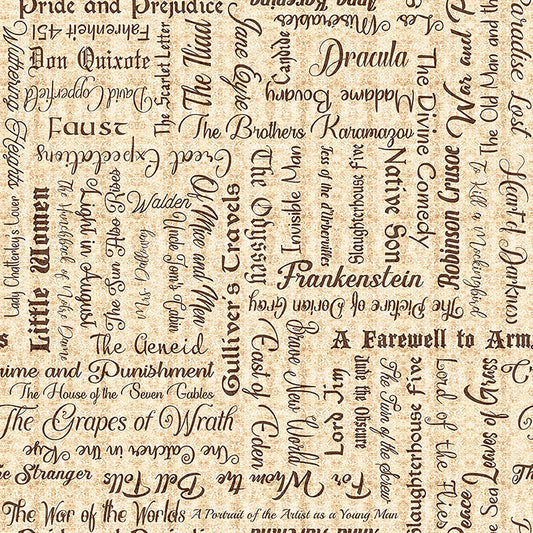 Pride and Prejudice
Anna Karenina
Les Miserables
Fahrenheit 451
Wuthering Heights
Don Quixote
David Copperfield
The Scarlet Letter
The Iliad
Jane Eyre
Candide
Dracula
Madame Bovary
The Divine Comedy
War and P
The Old Man and the
Paradise Lost
Faust
The Brothers Karamazov
Great Expectations
Lady Chatterley's Lover
Little Women
The Hunchback of Notre Dame
Light in August
The Sun Also Rises
Walden
Mrs. Dalloway
Uncle Tom's Cabin
Of Mice and Men
Gulliver's Travels
The Odyssey
Invisible Man
Tess of the d'Urbervilles
Slaughterhouse Five
Native Son
Robinson Crusoe
To Kill a Mockingbird
Heart of Darkness
Frankenstein
The Picture of Dorian Gray
s
A Farewell to Arm
The Aeneid
rime and Punishment
The House of the Seven Gables
The Grapes of Wrath
The Catcher in the Rye
East of Eden
Brave New World
Lord Jim
Jude the Obscure
The Turn of the Screw
Slaughterhouse Five
Lord of the Flies
Leaves of Grass
he Stranger
For Whom the Bell Tolls
The War of the Worlds
A Portrait of the Artist as a Young Man
Peace
the Sea
Pride and Prejudice
Anna Karenina